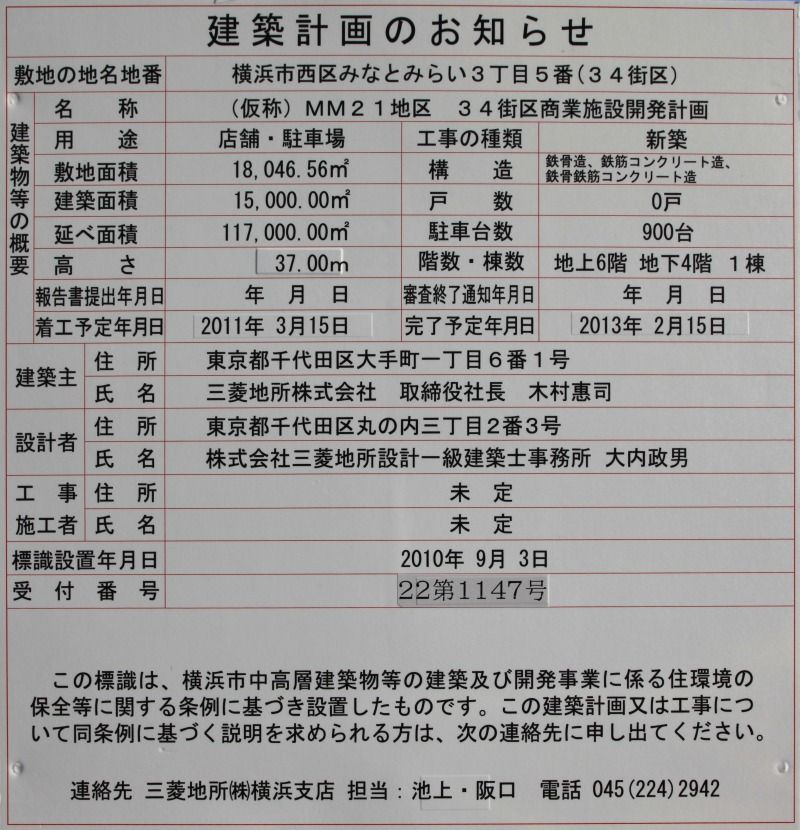 建築計画のお知らせ
敷地の地名地番 横浜市西区みなとみらい３丁目５番(３４街区)
建築物等の概要
名 称 (仮称)ＭＭ２１地区 ３４街区商業施設開発計画
用 途 店舗・駐車場 工事の種類 新築
敷地面積 18,046.56㎡ 構 造 鉄骨造、鉄筋コンクリート造、
鉄骨鉄筋コンクリート造
建築面積 15,000.00㎡ 戸 数 0戸
延べ面積 117,000.00㎡ 駐車台数 900台
高 さ 37.00m 階数・棟数 地上6階 地下4階 1棟
報告書提出年月日 年 月 日 審査終了通知年月日 年 月 日
着工予定年月日 2011年 3月15日 完了予定年月日 2013年 2月15日
建築主 住 所 東京都千代田区大手町一丁目６番１号
氏 名 三菱地所株式会社 取締役社長 木村惠司
設計者 住 所 東京都千代田区丸の内三丁目２番３号
氏 名 株式会社三菱地所設計一級建築士事務所 大内政男
工 事 住 所 未 定
施工者 氏 名 未 定
標識設置年月日 2010年 9月 3日
受 付 番 号 22第1147号
この標識は、横浜市中高層建築物等の建築及び開発事業に係る住環境の
保全等に関する条例に基づき設置したものです。この建築計画又は工事につ
いて同条例に基づく説明を求められる方は、次の連絡先に申し出てください。
連絡先 三菱地所㈱横浜支店 担当：池上・阪口 電話 045(224)2942